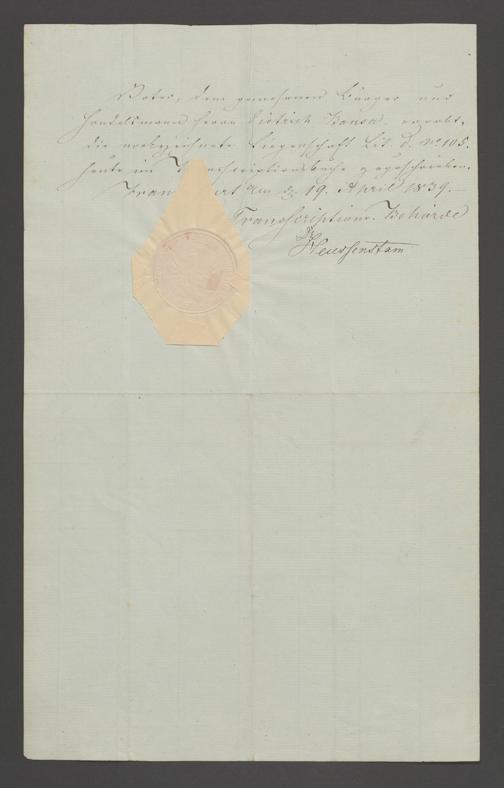 Vater, dem gewesenen Bürger und
Handelsmann Herrn Dietrich Bansa ererbt,
die vorbezeichnete Liegenschaft Lit. D. No 105.
heute im Transcriptionsbuche zugeschrieben.
Frankfurt am d. 19. April 1839.—
Transcriptions-Behörde
Dr Heussenstam